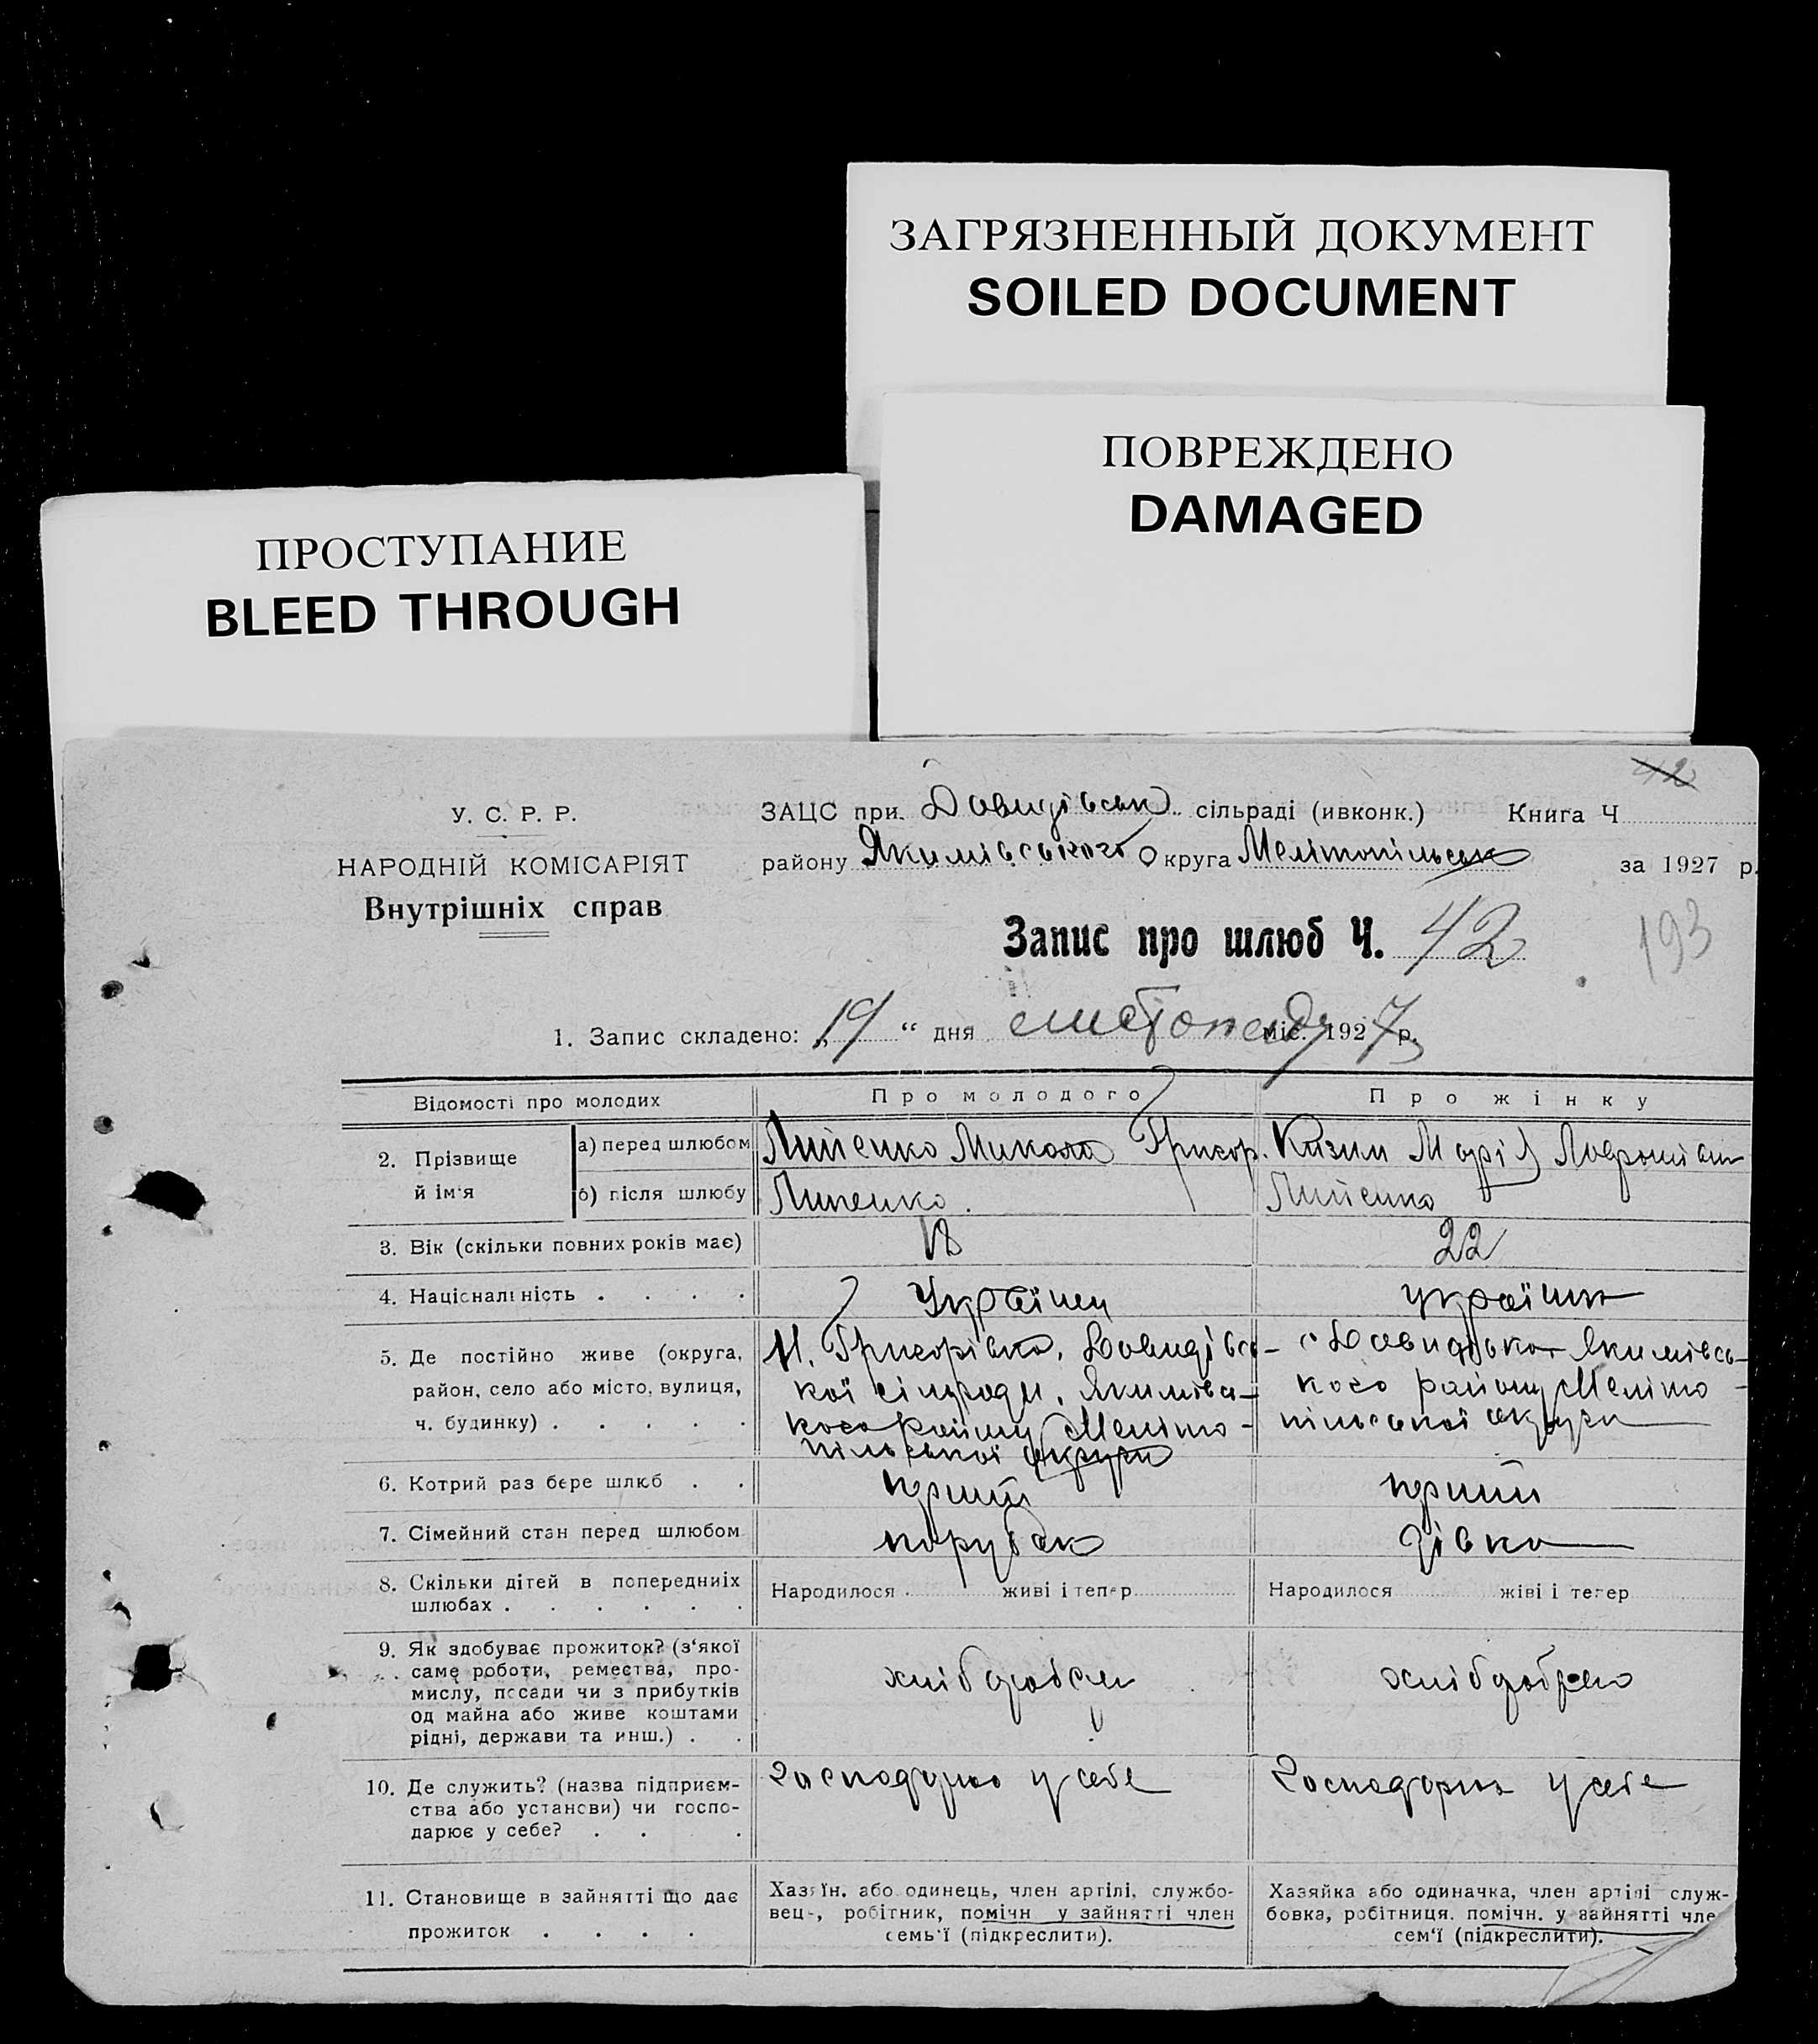 ЗАГРЯЗНЕННЫЙ ДОКУМЕНТ
SOILED DOCUMENT
ПОВРЕЖДЕНО
DAMAGED
ПРОСТУПАНИЕ
BLEED THROUGH
42
У. С. Р. Р.
НАРОДНІЙ КОМІСАРІЯТ
Внутрішніх справ
ЗАЦС при Давидівськ сільраді (ивконк.) Книга Ч
району Якимівського Округа Мелітопільськ за 1927 р.
Запис про шлюб Ч. 42
193
1. Запис складено: „19“ дня листопаду міс. 1927 р.
Відомості про молодих
Про молодого
Про жінку
2. Прізвище й ім'я
а) перед шлюбом
Липенко Микола Григор.
Марія
б) після шлюбу
Липенко.
Липенко
3. Вік (скільки повних років має)
18
22
4. Національність . . . .
Українец
українка
5. Де постійно живе (округа,
район, село або місто, вулиця,
ч. будинку) . . . . .
Н. Григорівка, Давидівсь-
кої сільради, Якимівсь-
кого району Меліто-
пільської округи
с Давидівка Якимівсь-
кого району Меліто-
пільської округи
6. Котрий раз бере шлюб . .
перший
перший
7. Сімейний стан перед шлюбом
парубок
дівка
8. Скільки дітей в попередниіх
шлюбах . . . . . .
Народилося живі і тепер
Народилося жіві і тепер
9. Як здобуває прожиток? (з'якої
саме роботи, ремества, про-
мислу, посади чи з прибутків
од майна або живе коштами
рідні, держави та инш.) . .
хлібороб
хлібороб
10. Де служить? (назва підприєм-
ства або установи) чи госпо-
дарює у себе? . . .
господарює у себе
Господарює у себе
11. Становище в зайнятті що дає
прожиток . . . .
Хазяїн, або одинець, член артілі, службо-
вець, робітник, помічн у зайнятті член
семь'ї (підкреслити).
Хазяйка або одиначка, член артілі служ-
бовка, робітниця, помічн. у зайнятті чле
сем'ї (підкреслити).